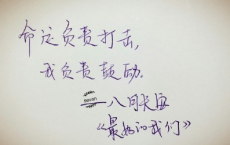 命运负责打击,
我负责鼓励.
—八月长安
《最好的我们》